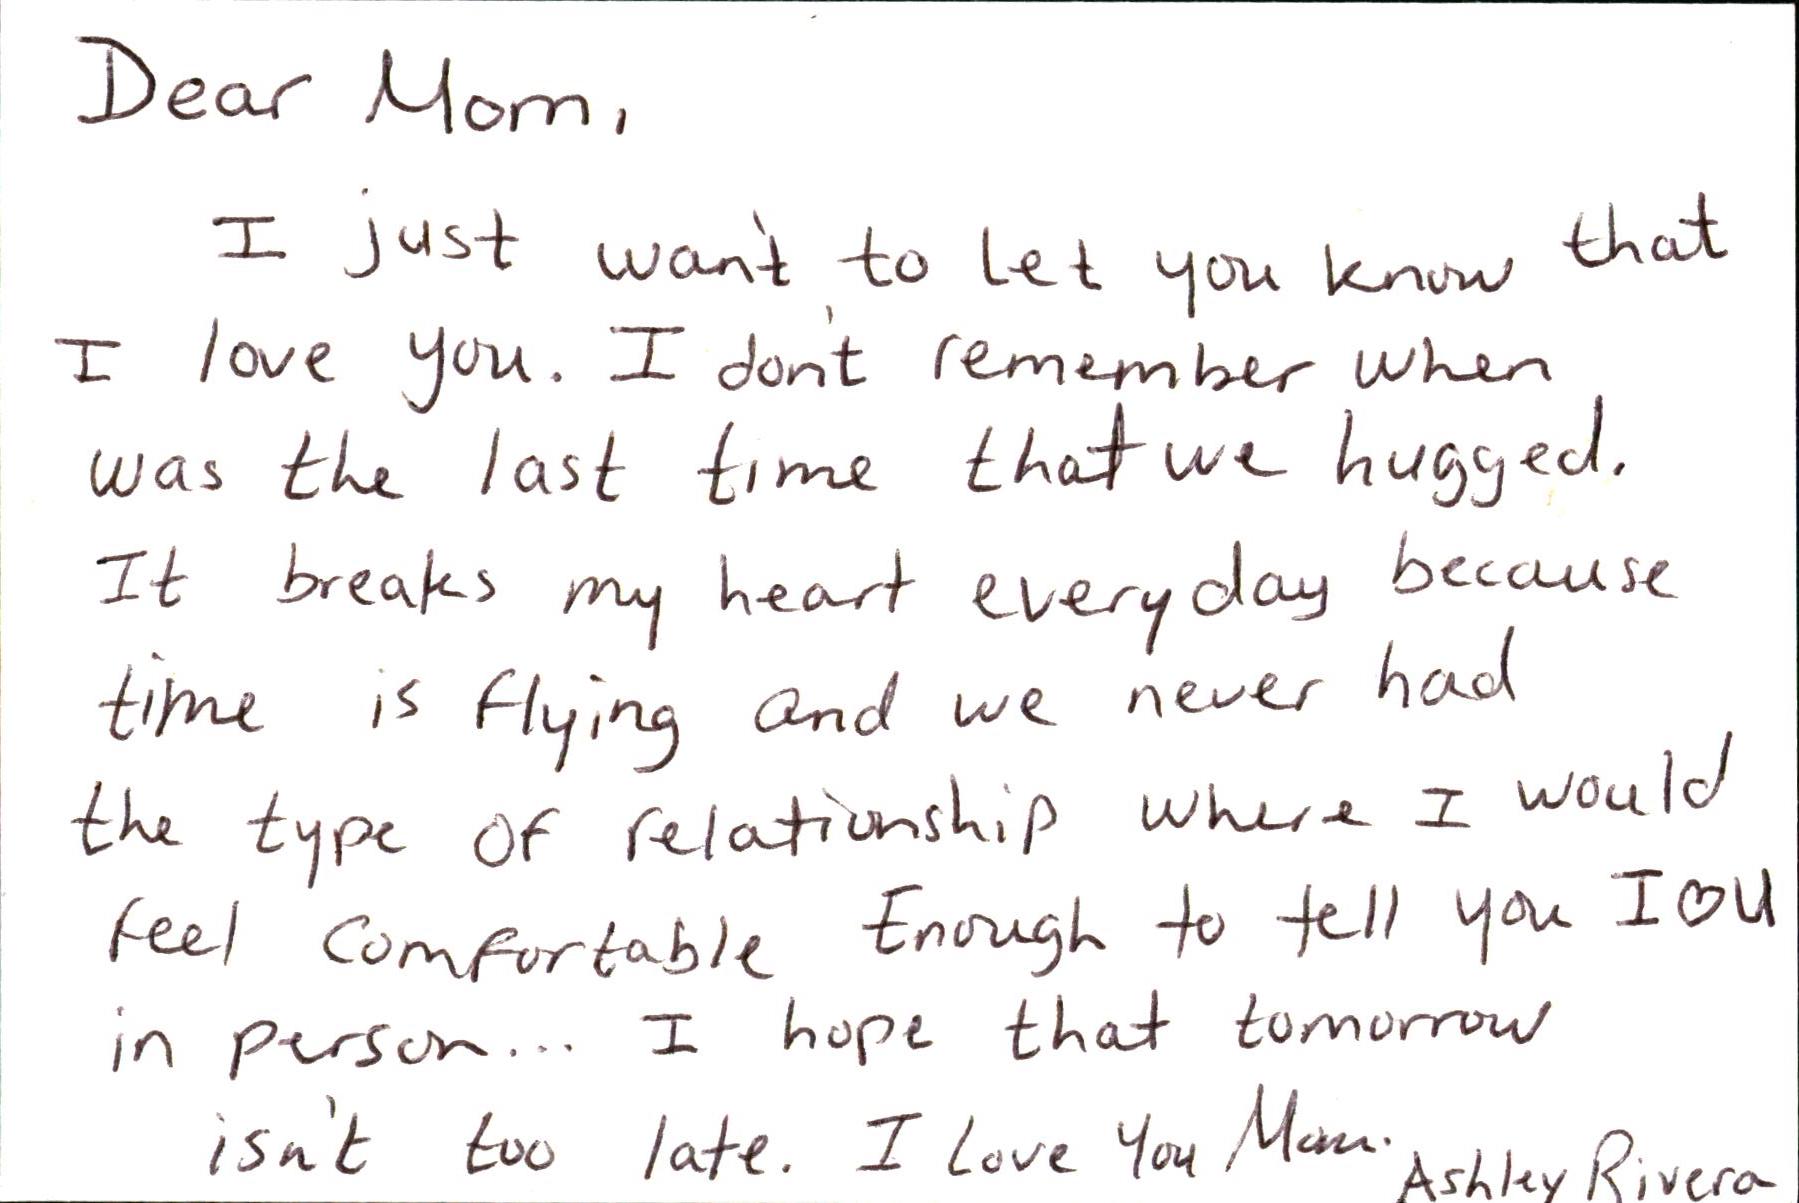 Dear Mom,
I just wan't to let you know that
I love you. I don't remember when
was the last time that we hugged.
It breaks my heart everyday because
time is flying and we never had
the type of relationship where I would
feel comfortable Enough to tell you I ♡ U
in person... I hope that tomorrow
isn't too late. I Love You Mom.
Ashley Rivera